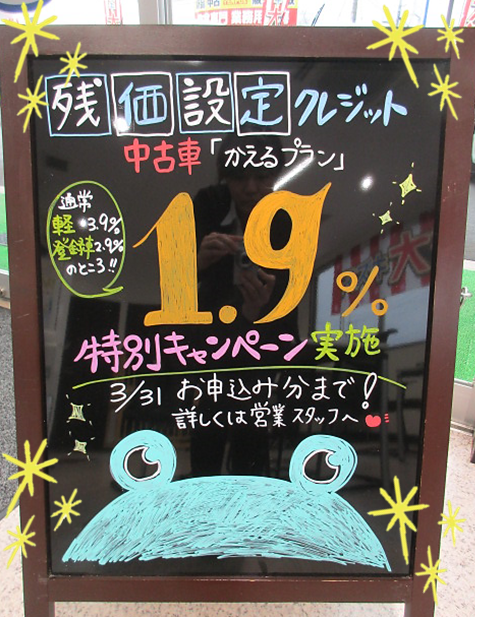 残価設定クレジット
中古車「かえるプラン」
通常
軽 3.9%
登録車2.9%
のところ!!
1.9%
特別キャンペーン実施
3/31 お申込み分まで!
詳しくは営業スタッフへ